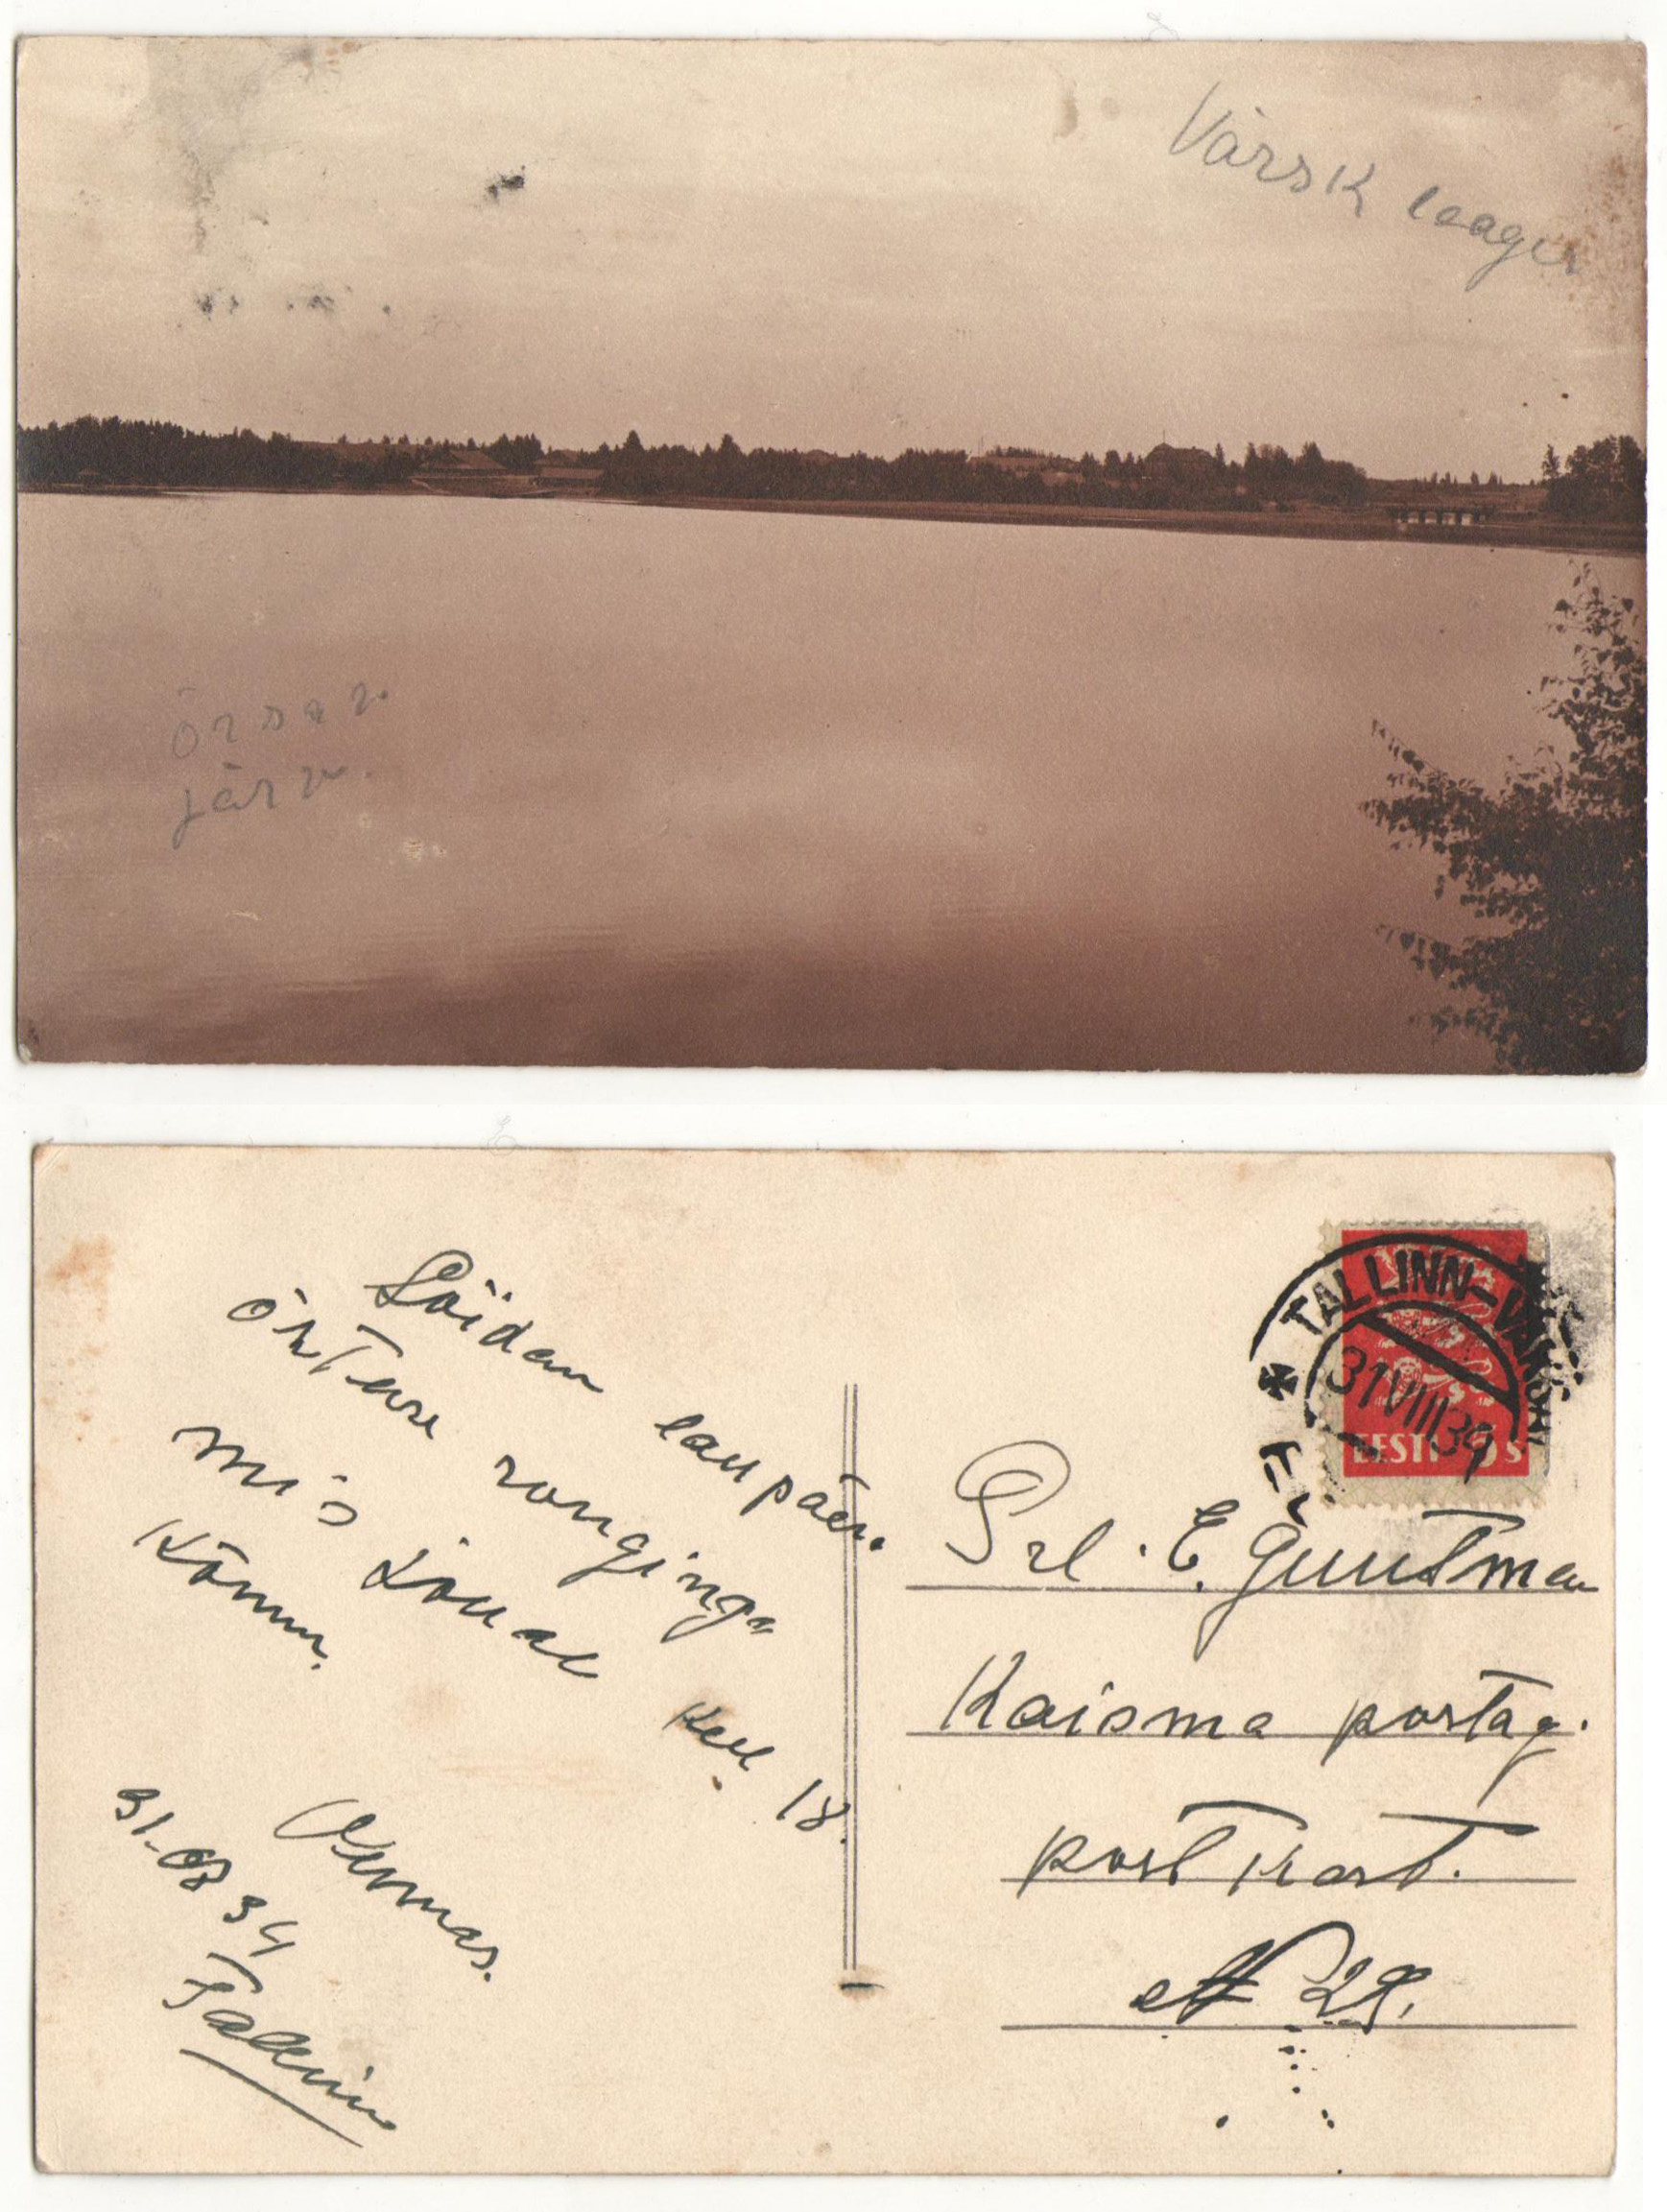 Värsk laager
Örsav.
järv.
Sõidan laupäev.
õhtuse rongiga
mis jõuab kell 18.
Kõnnu.
Oskmas.
31.08 34
Tallinn
TALLINN-VAKSAL
31 VIII 34
EESTI 5 S
Prl. E. Guutman
Kaisma postag.
post kast.
N 29.